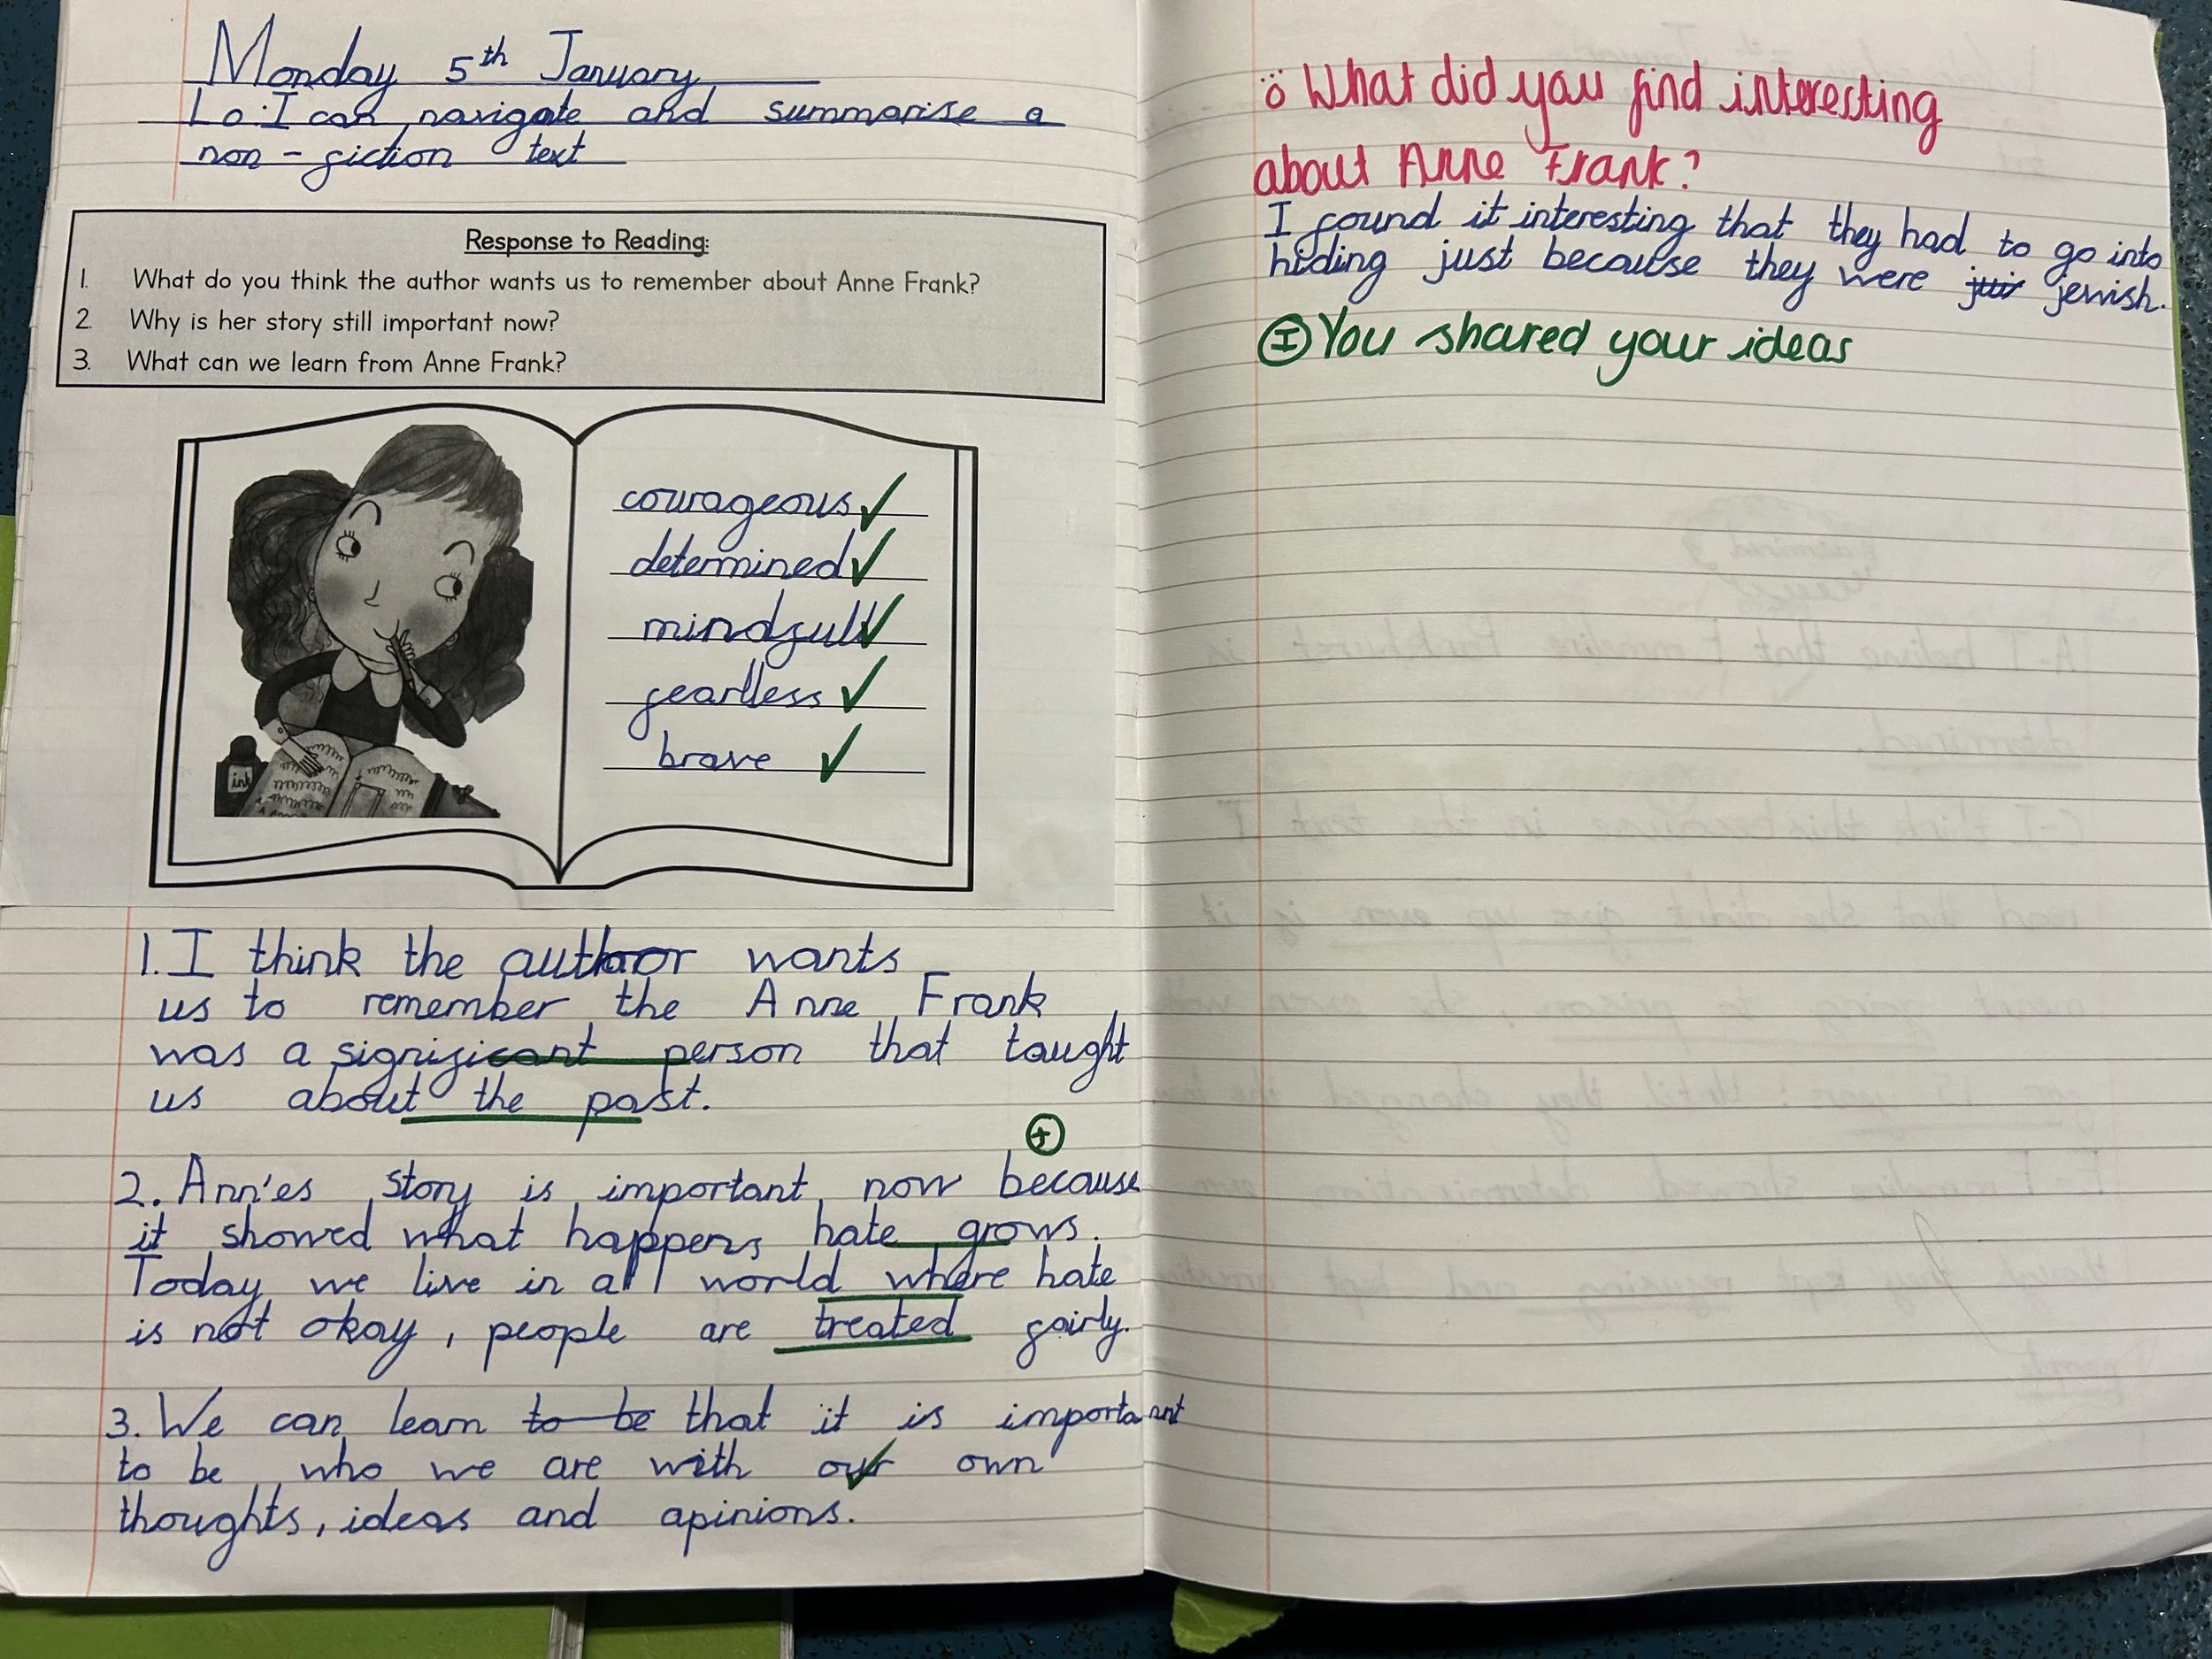 Monday 5th January
Lo: I can navigate and summarise a
non-fiction text
Response to Reading:
1. What do you think the author wants us to remember about Anne Frank?
2. Why is her story still important now?
3. What can we learn from Anne Frank?
courageous ✓
determined ✓
mindfull ✓
fearlless ✓
brave ✓
ink
1. I think the author wants
us to remember the Anne Frank
was a significant person that taught
us about the past.
2. Ann'es story is important now because
it showed what happens hate grows.
Today we live in a world where hate
is not okay, people are treated fairly.
3. We can learn to be that it is important
to be who we are with our own
thoughts, ideas and apinions.
What did you find interesting
about Anne Frank?
I found it interesting that they had to go into
hiding just because they were jewish.
I You shared your ideas